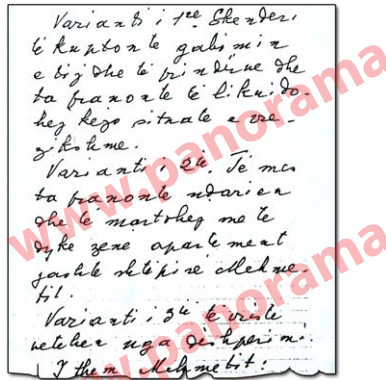 Varianti i 1re Skenderi
të kuptonte gabimin
e tij dhe të prindërve dhe
ta pranonte të likuido-
hej kejo situatë e rre-
zikshme.
Varianti i 2të. Të mos
ta pranonte ndarjen
dhe të martohej me të
dyke zënë apartament
jashtë shtëpisë Mehme-
tit.
Varianti i 3të të vriste
vetëhen nga dëshpërimi.
I them Mehmetit:
www.panorama
www.panorama